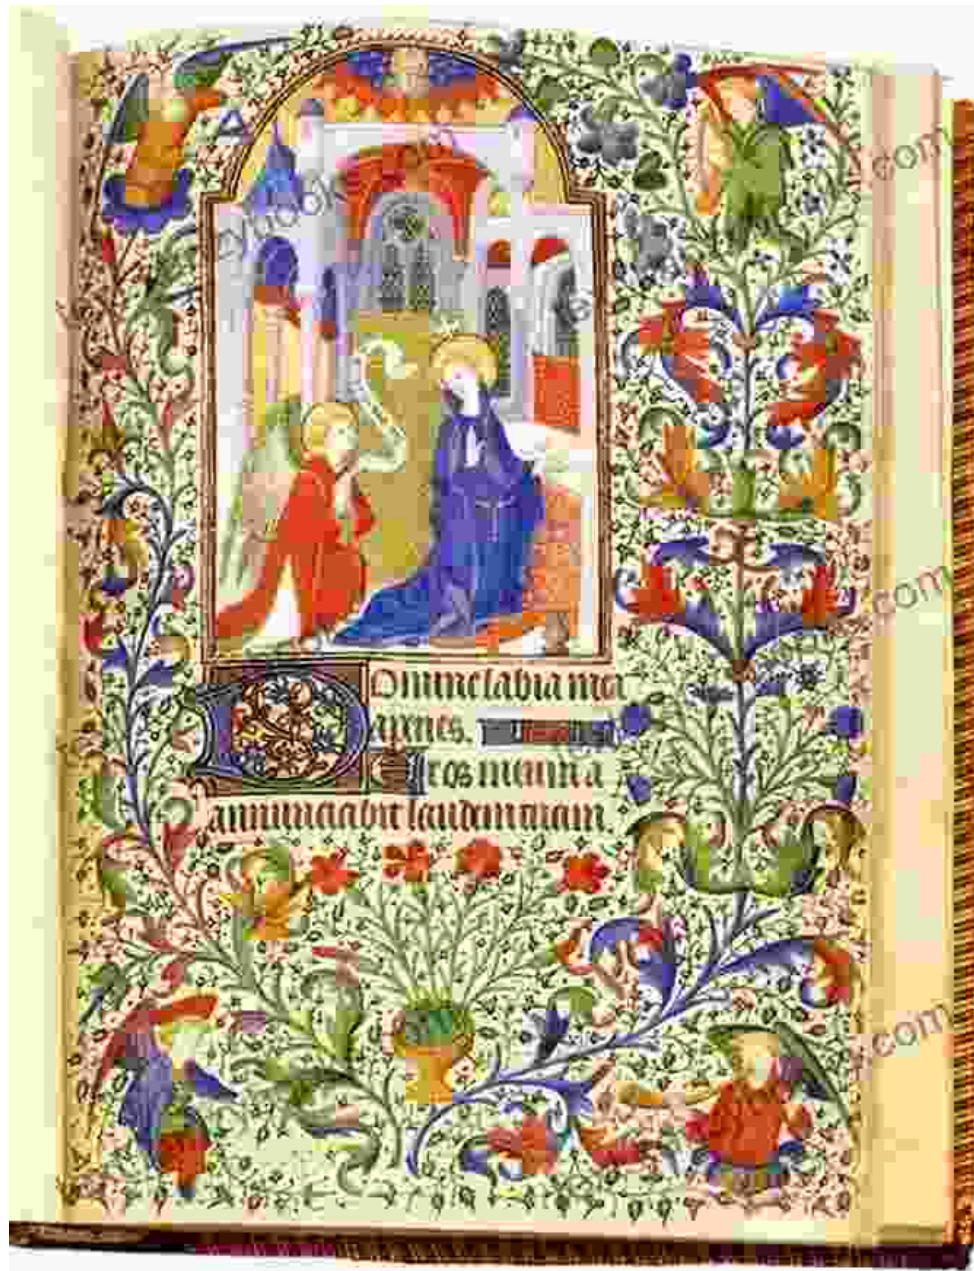 .com
Domine labia mea
aperies.
Et os meum a
annunciabit laudem tuam.
.com
.com